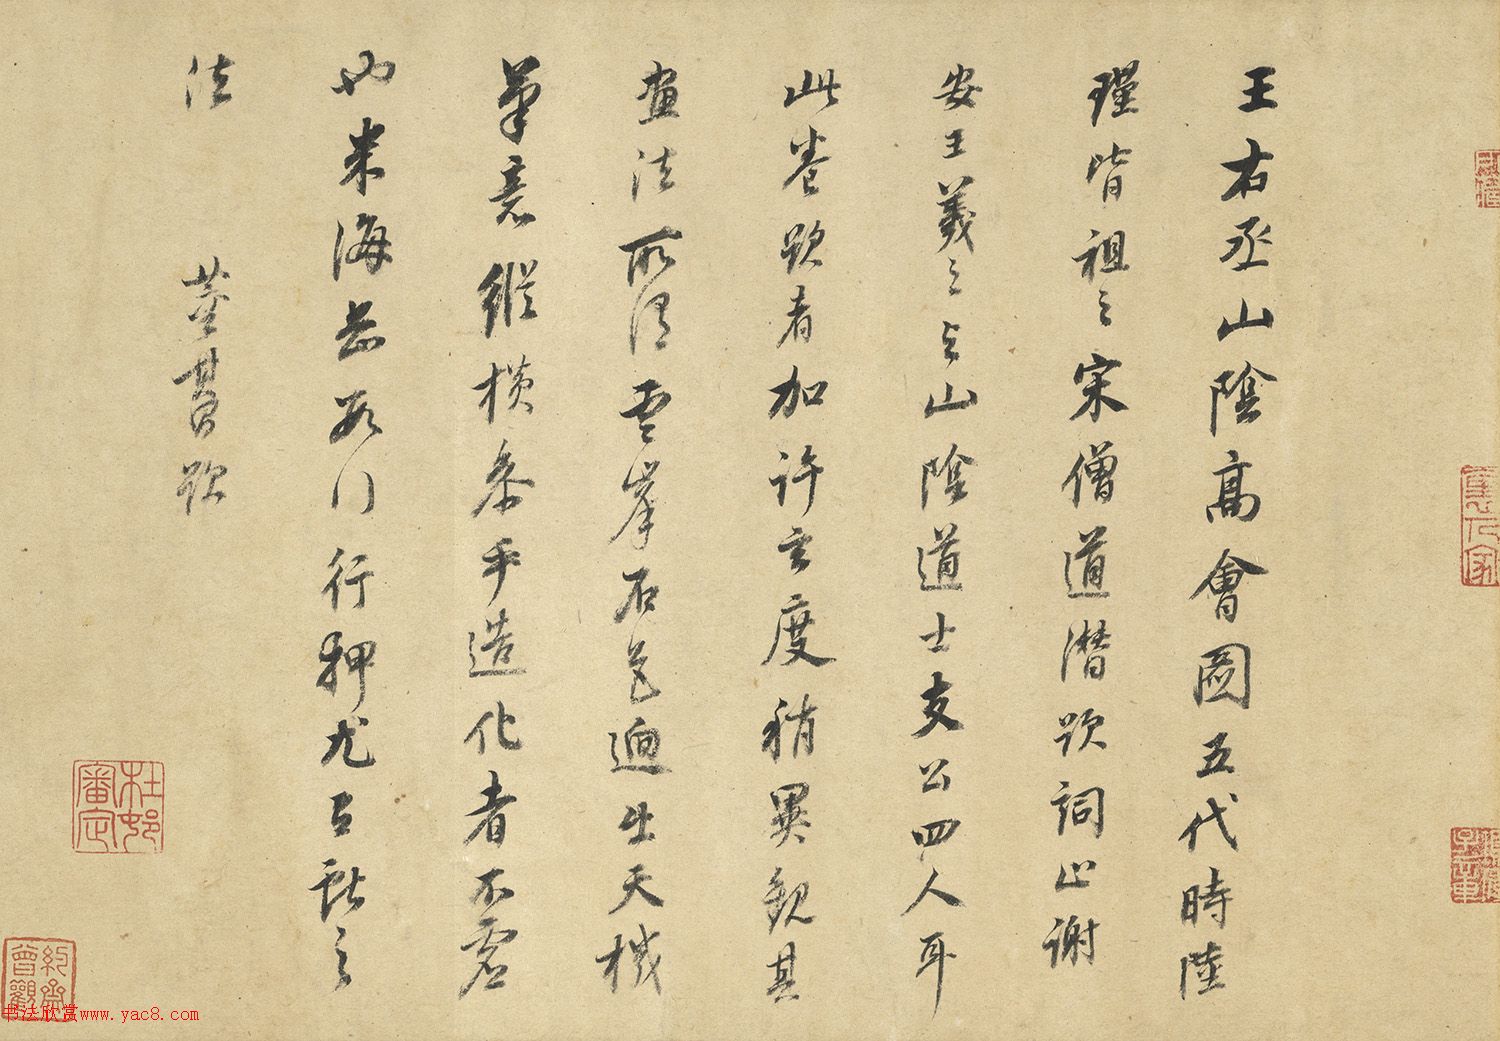 王右丞山陰高會圖五代時陸
瑾皆祖之宋僧道潛題詞止謝
安王羲之與山陰道士支公四人耳
此卷題者加許玄度稍異觀其
畫法所謂雲峯石色迥出天機
筆意縱橫參乎造化者不虛
也米海岳數行押尤
法
董其昌題
杜邨審定
約齋曾觀
书法欣赏www.yac8.com